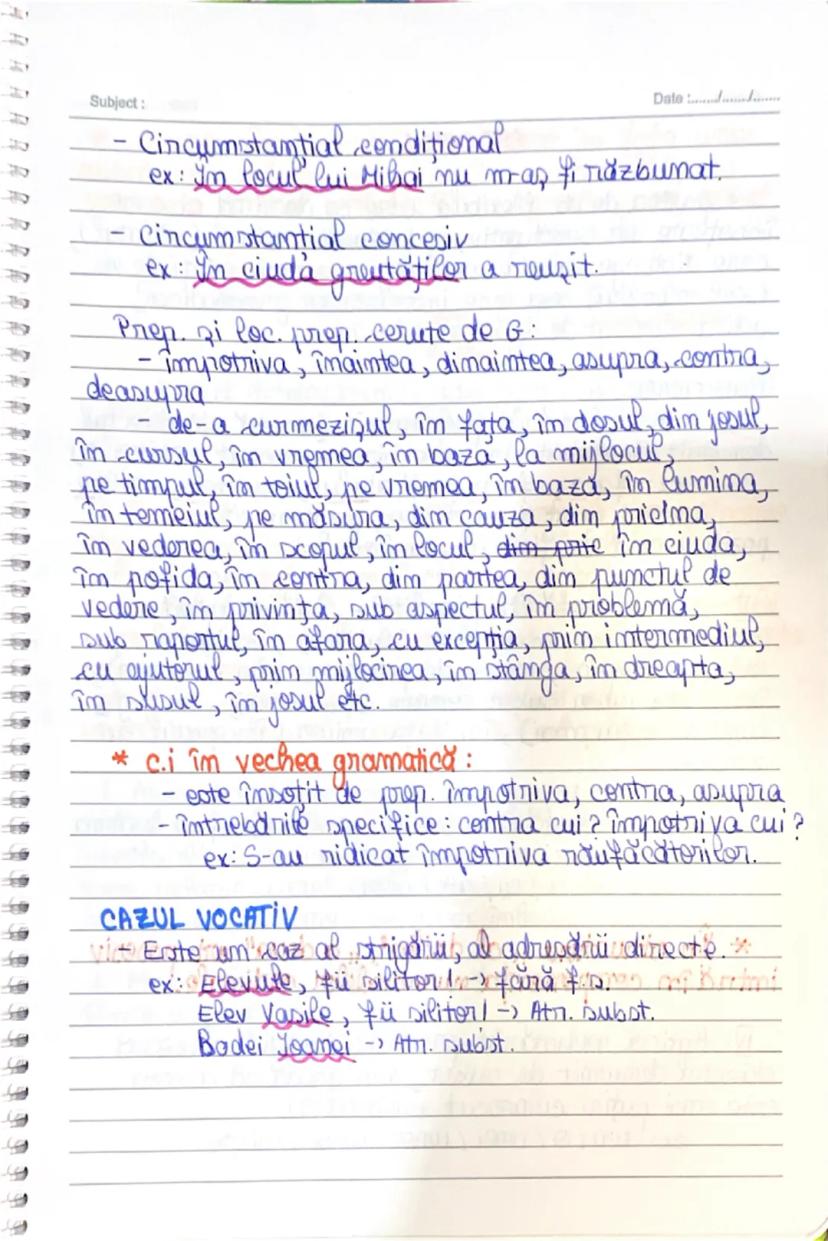 Subject :
Date :......./......./.......
- Circumstanțial condițional
ex: În locul lui Mihai nu m-aș fi răzbunat.
- Circumstanțial concesiv
ex: În ciuda greutăților a reușit.
Prep. și loc. prep. cerute de G:
- împotriva, înaintea, dinaintea, asupra, contra,
deasupra
- de-a curmezișul, în fața, în dosul, din josul,
în cursul, în vremea, în baza, la mijlocul,
pe timpul, în toiul, pe vremea, în baza, în lumina,
în temeiul, pe măsura, din cauza, din pricina,
în vederea, în scopul, în locul, din pric în ciuda,
în pofida, în contra, din partea, din punctul de
vedere, în privința, sub aspectul, în problemă,
sub raportul, în afara, cu excepția, prin intermediul,
cu ajutorul, prin mijlocirea, în stânga, în dreapta,
în susul, în josul etc.
* c.i în vechea gramatică:
- este însoțit de prep. împotriva, contra, asupra
- întrebările specifice: contra cui? împotriva cui?
ex: S-au ridicat împotriva răufăcătorilor.
CAZUL VOCATIV
- Este un caz al strigării, al adresării directe.
ex: Elevule, fii silitor! -> fără f.s.
Elev Vasile, fii silitor! -> Atr. subst.
Badei Ioanei -> Atr. subst.